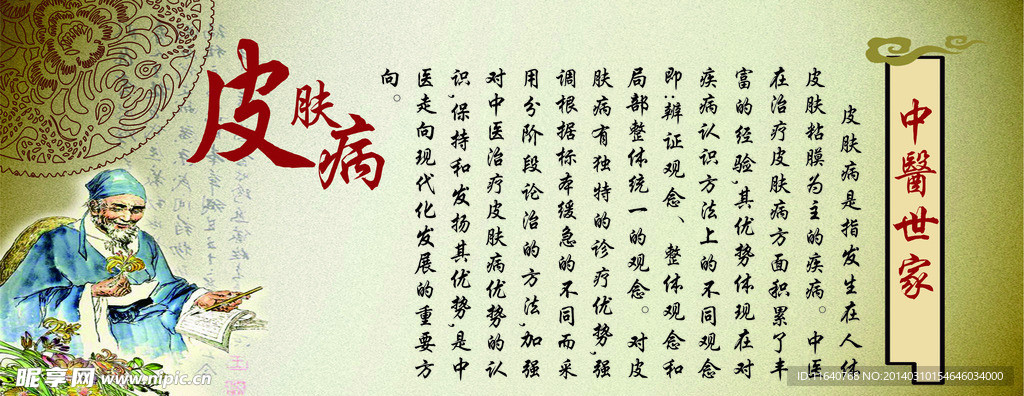 中醫世家
皮肤病是指发生在人体
皮肤粘膜为主的疾病。中医
在治疗皮肤病方面积累了丰
富的经验,其优势体现在对
疾病认识方法上的不同观念
即,辨证观念、整体观念和
局部整体统一的观念。对皮
肤病有独特的诊疗优势,强
调根据标本缓急的不同而采
用分阶段论治的方法,加强
对中医治疗皮肤病优势的认
识,保持和发扬其优势,是中
医走向现代化发展的重要方
向。
皮肤病
昵享网 www.nipic.cn
ID:11640768 NO:20140310154646034000